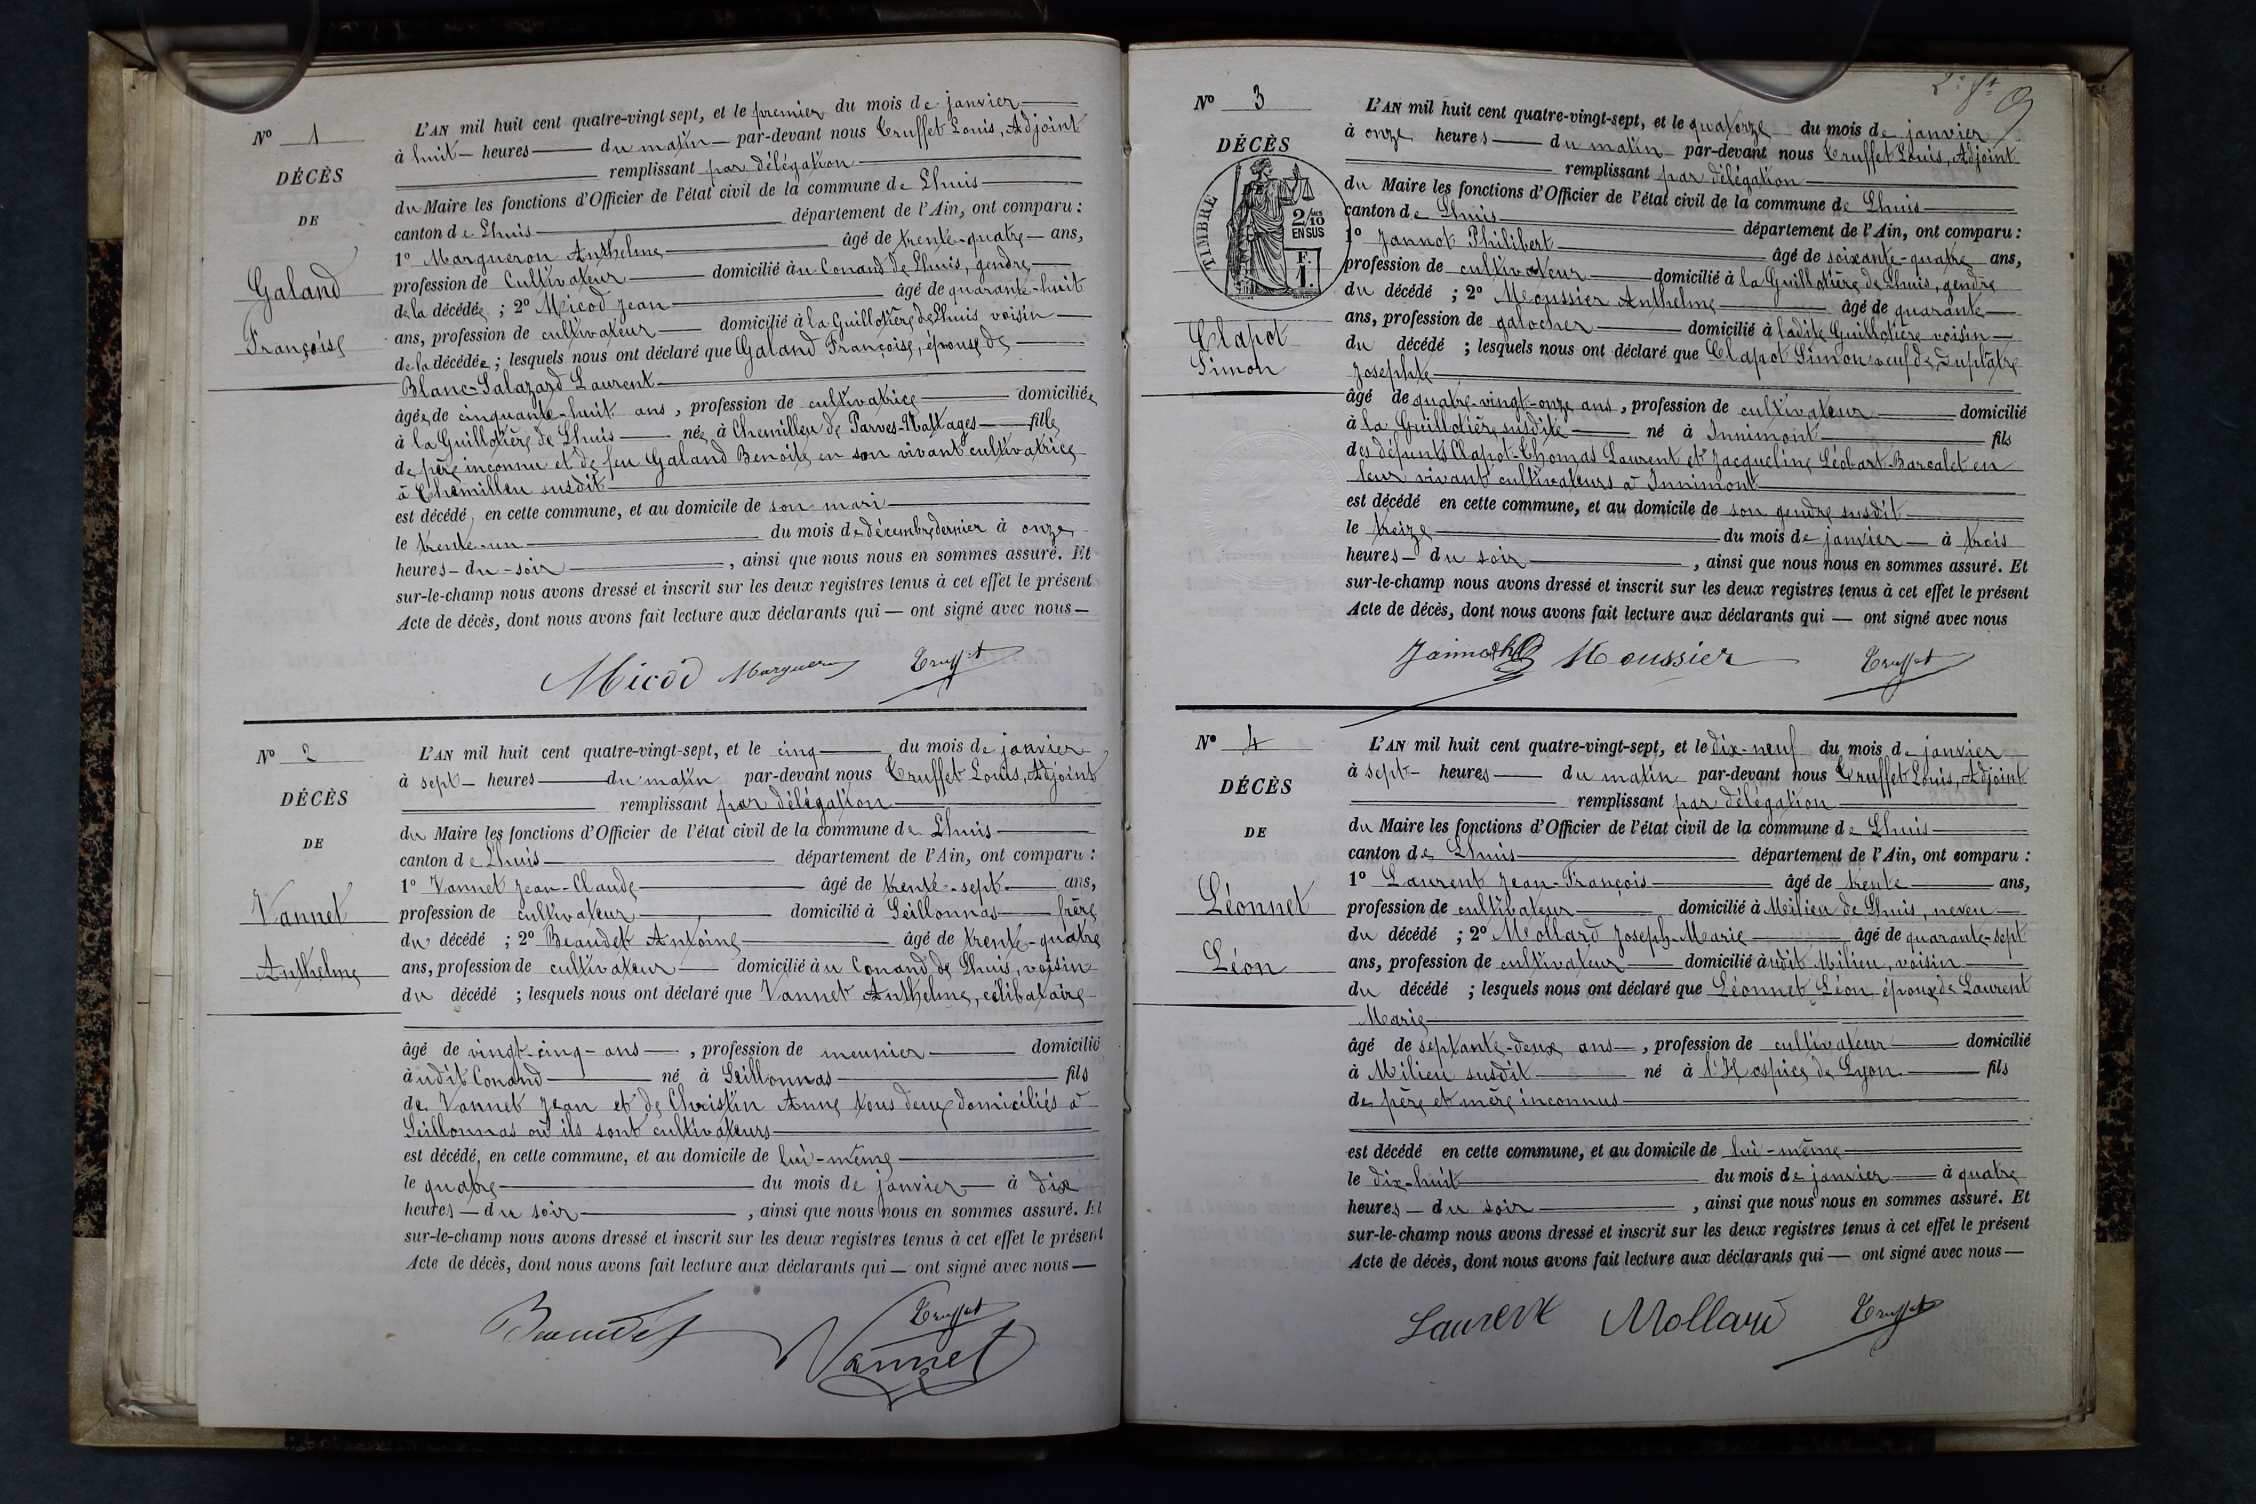 N° 1
DÉCÈS
DE
Galand
Françoise
L'AN mil huit cent quatre-vingt sept, et le premier du mois de janvier
à huit heures du matin par-devant nous Truffet Louis, Adjoint
remplissant par délégation
du Maire les fonctions d'Officier de l'état civil de la commune de Lhuis
canton de Lhuis département de l'Ain, ont comparu :
1° Margueron Anthelme âgé de trente-quatre ans,
profession de Cultivateur domicilié àu Conand de Lhuis, gendre
de la décédée ; 2° Micod Jean âgé de quarante-huit
ans, profession de cultivateur domicilié à la Guillotière de Lhuis voisin
de la décédée ; lesquels nous ont déclaré que Galand Françoise, épouse de
Blanc-Salazard Laurent
âgée de cinquante-huit ans, profession de cultivatrice domiciliée
à la Guillotière de Lhuis née à Chemilleu de Parves-Nattages fille
de père inconnu et de feu Galand Benoite en son vivant cultivatrice
à Chemilleu susdit
est décédé, en cette commune, et au domicile de son mari
le trente-un du mois de décembre dernier à onze
heures du soir, ainsi que nous nous en sommes assuré. Et
sur-le-champ nous avons dressé et inscrit sur les deux registres tenus à cet effet le présent
Acte de décès, dont nous avons fait lecture aux déclarants qui — ont signé avec nous —
Micod Margueron Truffet
N° 2
DÉCÈS
DE
Vannet
Anthelme
L'AN mil huit cent quatre-vingt-sept, et le cinq du mois de janvier
à sept heures du matin par-devant nous Truffet Louis, Adjoint
remplissant par délégation
du Maire les fonctions d'Officier de l'état civil de la commune de Lhuis
canton de Lhuis département de l'Ain, ont comparu :
1° Vannet Jean-Claude âgé de trente-sept ans,
profession de cultivateur domicilié à Seillonnas frère
du décédé ; 2° Beaudet Antoine âgé de trente-quatre
ans, profession de cultivateur domicilié àu Conand de Lhuis, voisin
du décédé ; lesquels nous ont déclaré que Vannet Anthelme, célibataire
âgé de vingt-cinq ans, profession de meunier domicilié
à udit Conand né à Seillonnas fils
de Vannet Jean et de Christin Anne tous deux domiciliés à
Seillonnas où ils sont cultivateurs
est décédé, en cette commune, et au domicile de lui-même
le quatre du mois de janvier à dix
heures du soir, ainsi que nous nous en sommes assuré. Et
sur-le-champ nous avons dressé et inscrit sur les deux registres tenus à cet effet le présent
Acte de décès, dont nous avons fait lecture aux déclarants qui — ont signé avec nous —
Beaudet Truffet
Vannet
N° 3
DÉCÈS
TIMBRE
2/10 EN SUS
F. 1.
Clapot
Simon
L'AN mil huit cent quatre-vingt-sept, et le quatorze du mois de janvier
à onze heures du matin par-devant nous Truffet Louis, Adjoint
remplissant par délégation
du Maire les fonctions d'Officier de l'état civil de la commune de Lhuis
canton de Lhuis département de l'Ain, ont comparu :
1° Jannot Philibert âgé de soixante-quatre ans,
profession de cultivateur domicilié à la Guillotière de Lhuis, gendre
du décédé ; 2° Moussier Anthelme âgé de quarante
ans, profession de galocher domicilié à ladite Guillotière voisin
du décédé ; lesquels nous ont déclaré que Clapot Simon veuf de Duplatre
Josephte
âgé de quatre-vingt-onze ans, profession de cultivateur domicilié
à la Guillotière susdite né à Innimont fils
des défunts Clapot-Thomas Laurent et Jacqueline Léobart-Barcalet en
leur vivant cultivateurs à Innimont
est décédé en cette commune, et au domicile de son gendre susdit
le treize du mois de janvier à trois
heures du soir, ainsi que nous nous en sommes assuré. Et
sur-le-champ nous avons dressé et inscrit sur les deux registres tenus à cet effet le présent
Acte de décès, dont nous avons fait lecture aux déclarants qui — ont signé avec nous
Moussier Truffet
N° 4
DÉCÈS
DE
Léonnet
Léon
L'AN mil huit cent quatre-vingt-sept, et le dix-neuf du mois de janvier
à sept heures du matin par-devant nous Truffet Louis, Adjoint
remplissant par délégation
du Maire les fonctions d'Officier de l'état civil de la commune de Lhuis
canton de Lhuis département de l'Ain, ont comparu :
1° Laurent Jean-François âgé de trente ans,
profession de cultivateur domicilié à Milieu de Lhuis, neveu
du décédé ; 2° Mollard Joseph-Marie âgé de quarante-sept
ans, profession de cultivateur domicilié àudit Milieu, voisin
du décédé ; lesquels nous ont déclaré que Léonnet Léon époux de Laurent
Marie
âgé de septante-deux ans, profession de cultivateur domicilié
à Milieu susdit né à l'Hospice de Lyon fils
de père et mère inconnus
est décédé en cette commune, et au domicile de lui-même
le dix-huit du mois de janvier à quatre
heures du soir, ainsi que nous nous en sommes assuré. Et
sur-le-champ nous avons dressé et inscrit sur les deux registres tenus à cet effet le présent
Acte de décès, dont nous avons fait lecture aux déclarants qui — ont signé avec nous —
Laurent Mollard Truffet